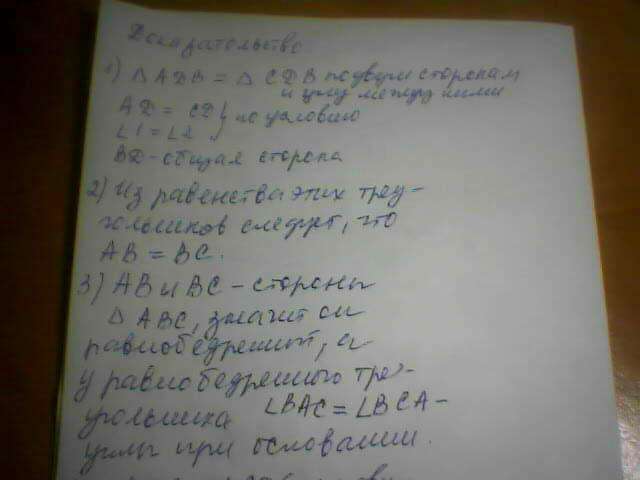 Доказательство
1) △ ADB = △ CDB по двум сторонам
и углу между ними
AD = CD } по условию
∠1 = ∠2
BD - общая сторона
2) Из равенства этих треу-
гольников следует, что
AB = BC.
3) AB и BC - стороны
△ ABC, значит он
равнобедренный, а
у равнобедренного тре-
угольника ∠BAC = ∠BCA -
углы при основании.